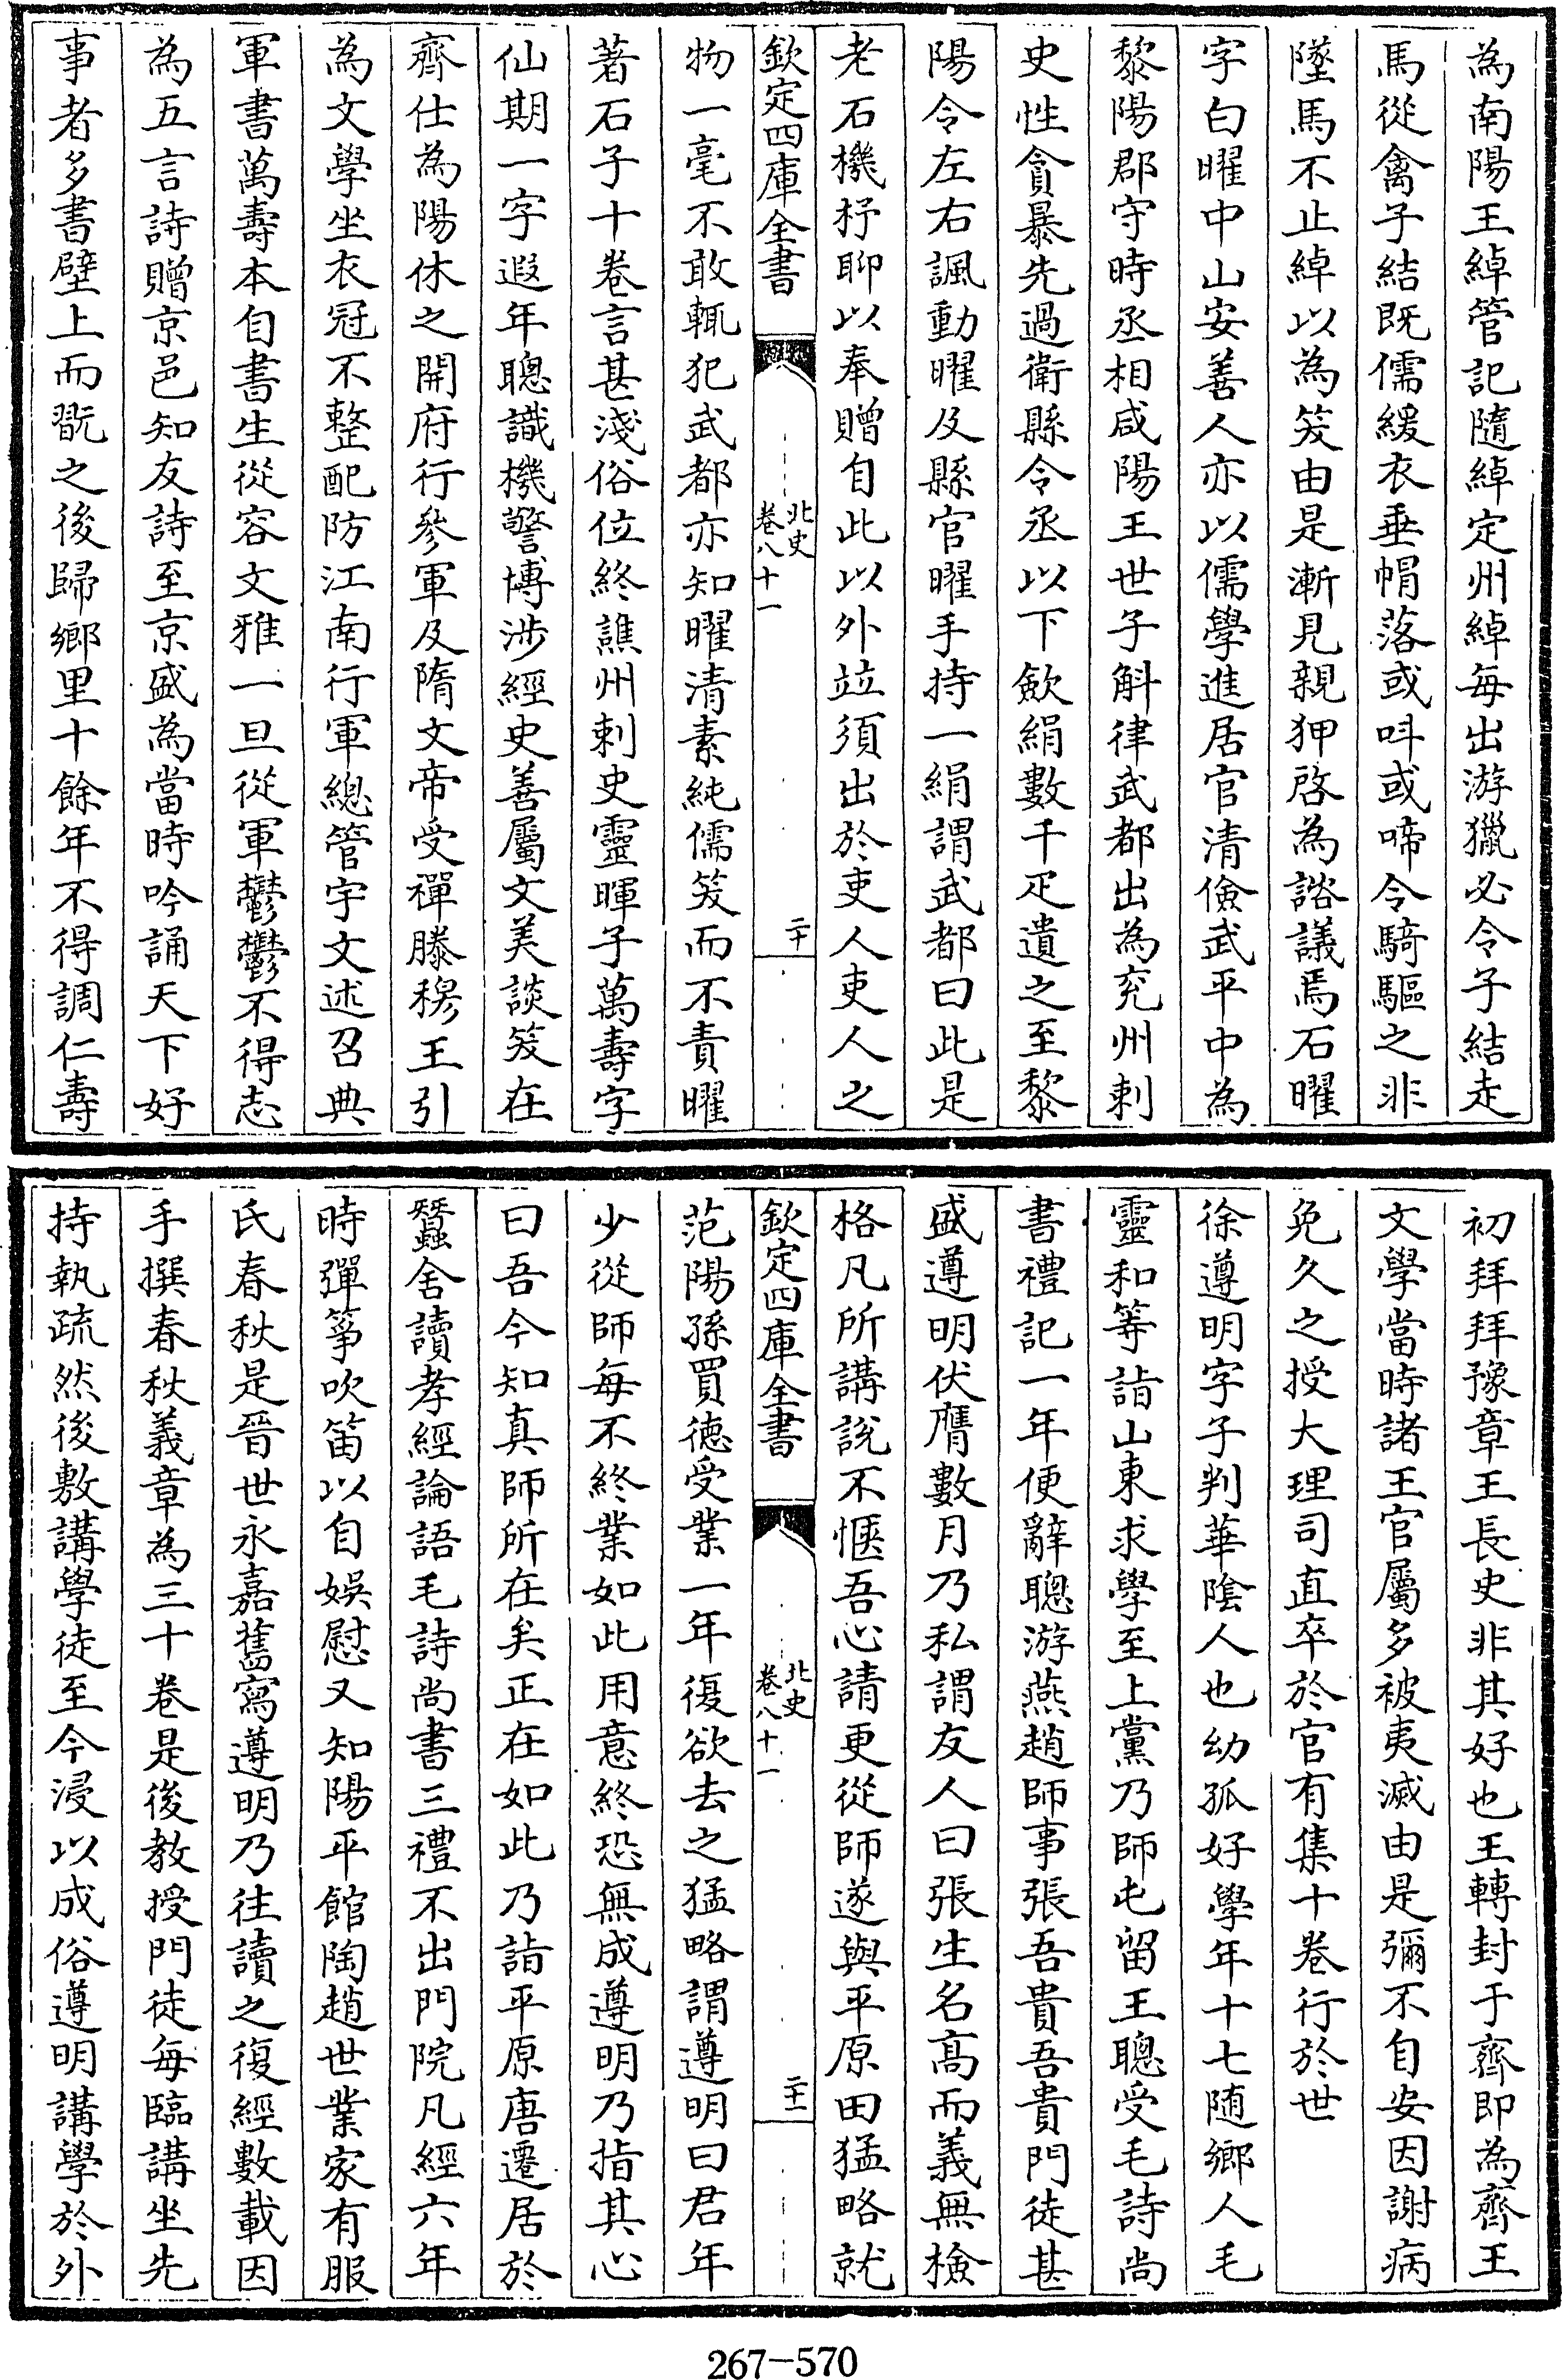 為南陽王綽管記隨綽定州綽每出游獵必令子結走
馬從禽子結既儒緩衣垂帽落或呌或啼令騎驅之非
墜馬不止綽以為笑由是漸見親狎啓為諮議焉石曜
字白曜中山安善人亦以儒學進居官清儉武平中為
黎陽郡守時丞相咸陽王世子斛律武都出為兖州刺
史性貪暴先過衛縣令丞以下歛絹數千疋遺之至黎
陽令左右諷動曜及縣官曜手持一絹謂武都曰此是
老石機杼聊以奉贈自此以外竝須出於吏人吏人之
欽定四庫全書
北史
卷八十一
二十
物一毫不敢輒犯武都亦知曜清素純儒笑而不責曜
著石子十卷言甚淺俗位終譙州刺史靈暉子萬壽字
仙期一字遐年聰識機警博涉經史善屬文美談笑在
齊仕為陽休之開府行參軍及隋文帝受禪滕穆王引
為文學坐衣冠不整配防江南行軍總管宇文述召典
軍書萬壽本自書生從容文雅一旦從軍鬱鬱不得志
為五言詩贈京邑知友詩至京盛為當時吟誦天下好
事者多書壁上而翫之後歸鄉里十餘年不得調仁壽
初拜拜豫章王長史非其好也王轉封于齊即為齊王
文學當時諸王官屬多被夷滅由是彌不自安因謝病
免久之授大理司直卒於官有集十卷行於世
徐遵明字子判華陰人也幼孤好學年十七随鄉人毛
靈和等詣山東求學至上黨乃師屯留王聰受毛詩尚
書禮記一年便辭聰游燕趙師事張吾貴吾貴門徒甚
盛遵明伏膺數月乃私謂友人曰張生名高而義無檢
格凡所講說不愜吾心請更從師遂與平原田猛略就
欽定四庫全書
北史
卷八十一
二十一
范陽孫買徳受業一年復欲去之猛略謂遵明曰君年
少從師每不終業如此用意終恐無成遵明乃指其心
曰吾今知真師所在矣正在如此乃詣平原唐遷居於
蠶舍讀孝經論語毛詩尚書三禮不出門院凡經六年
時彈箏吹笛以自娛慰又知陽平館陶趙世業家有服
氏春秋是晉世永嘉舊寫遵明乃往讀之復經數載因
手撰春秋義章為三十卷是後教授門徒每臨講坐先
持執疏然後敷講學徒至今浸以成俗遵明講學於外
267-570